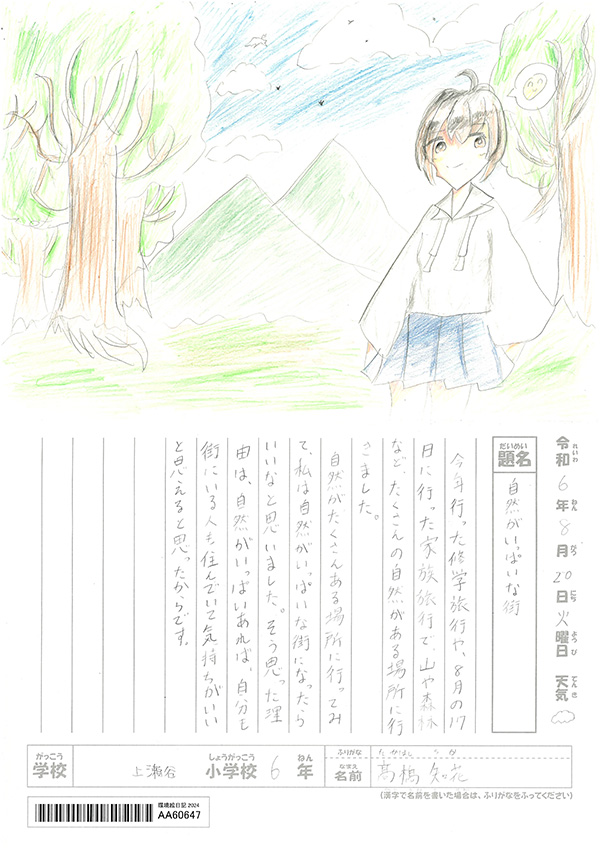 令和6年8月20日火曜日 天気
れいわ ねん がつ にち ようび てんき
だいめい
題名
自然がいっぱいな街
今年行った修学旅行や、8月の17
日に行った家族旅行で、山や森林
など、たくさんの自然がある場所に行
きました。
自然がたくさんある場所に行ってみ
て、私は自然がいっぱいな街になったら
いいなと思いました。そう思った理
由は、自然がいっぱいあれば、自分も
街にいる人も住んでいて気持ちがいい
と思えると思ったからです。
がっこう しょうがっこう ねん
学校 上瀬谷 小学校 6年
ふりがな たかはし ちか
なまえ
名前 髙橋 知花
(漢字で名前を書いた場合は、ふりがなをふってください)
環境絵日記 2024
AA60647